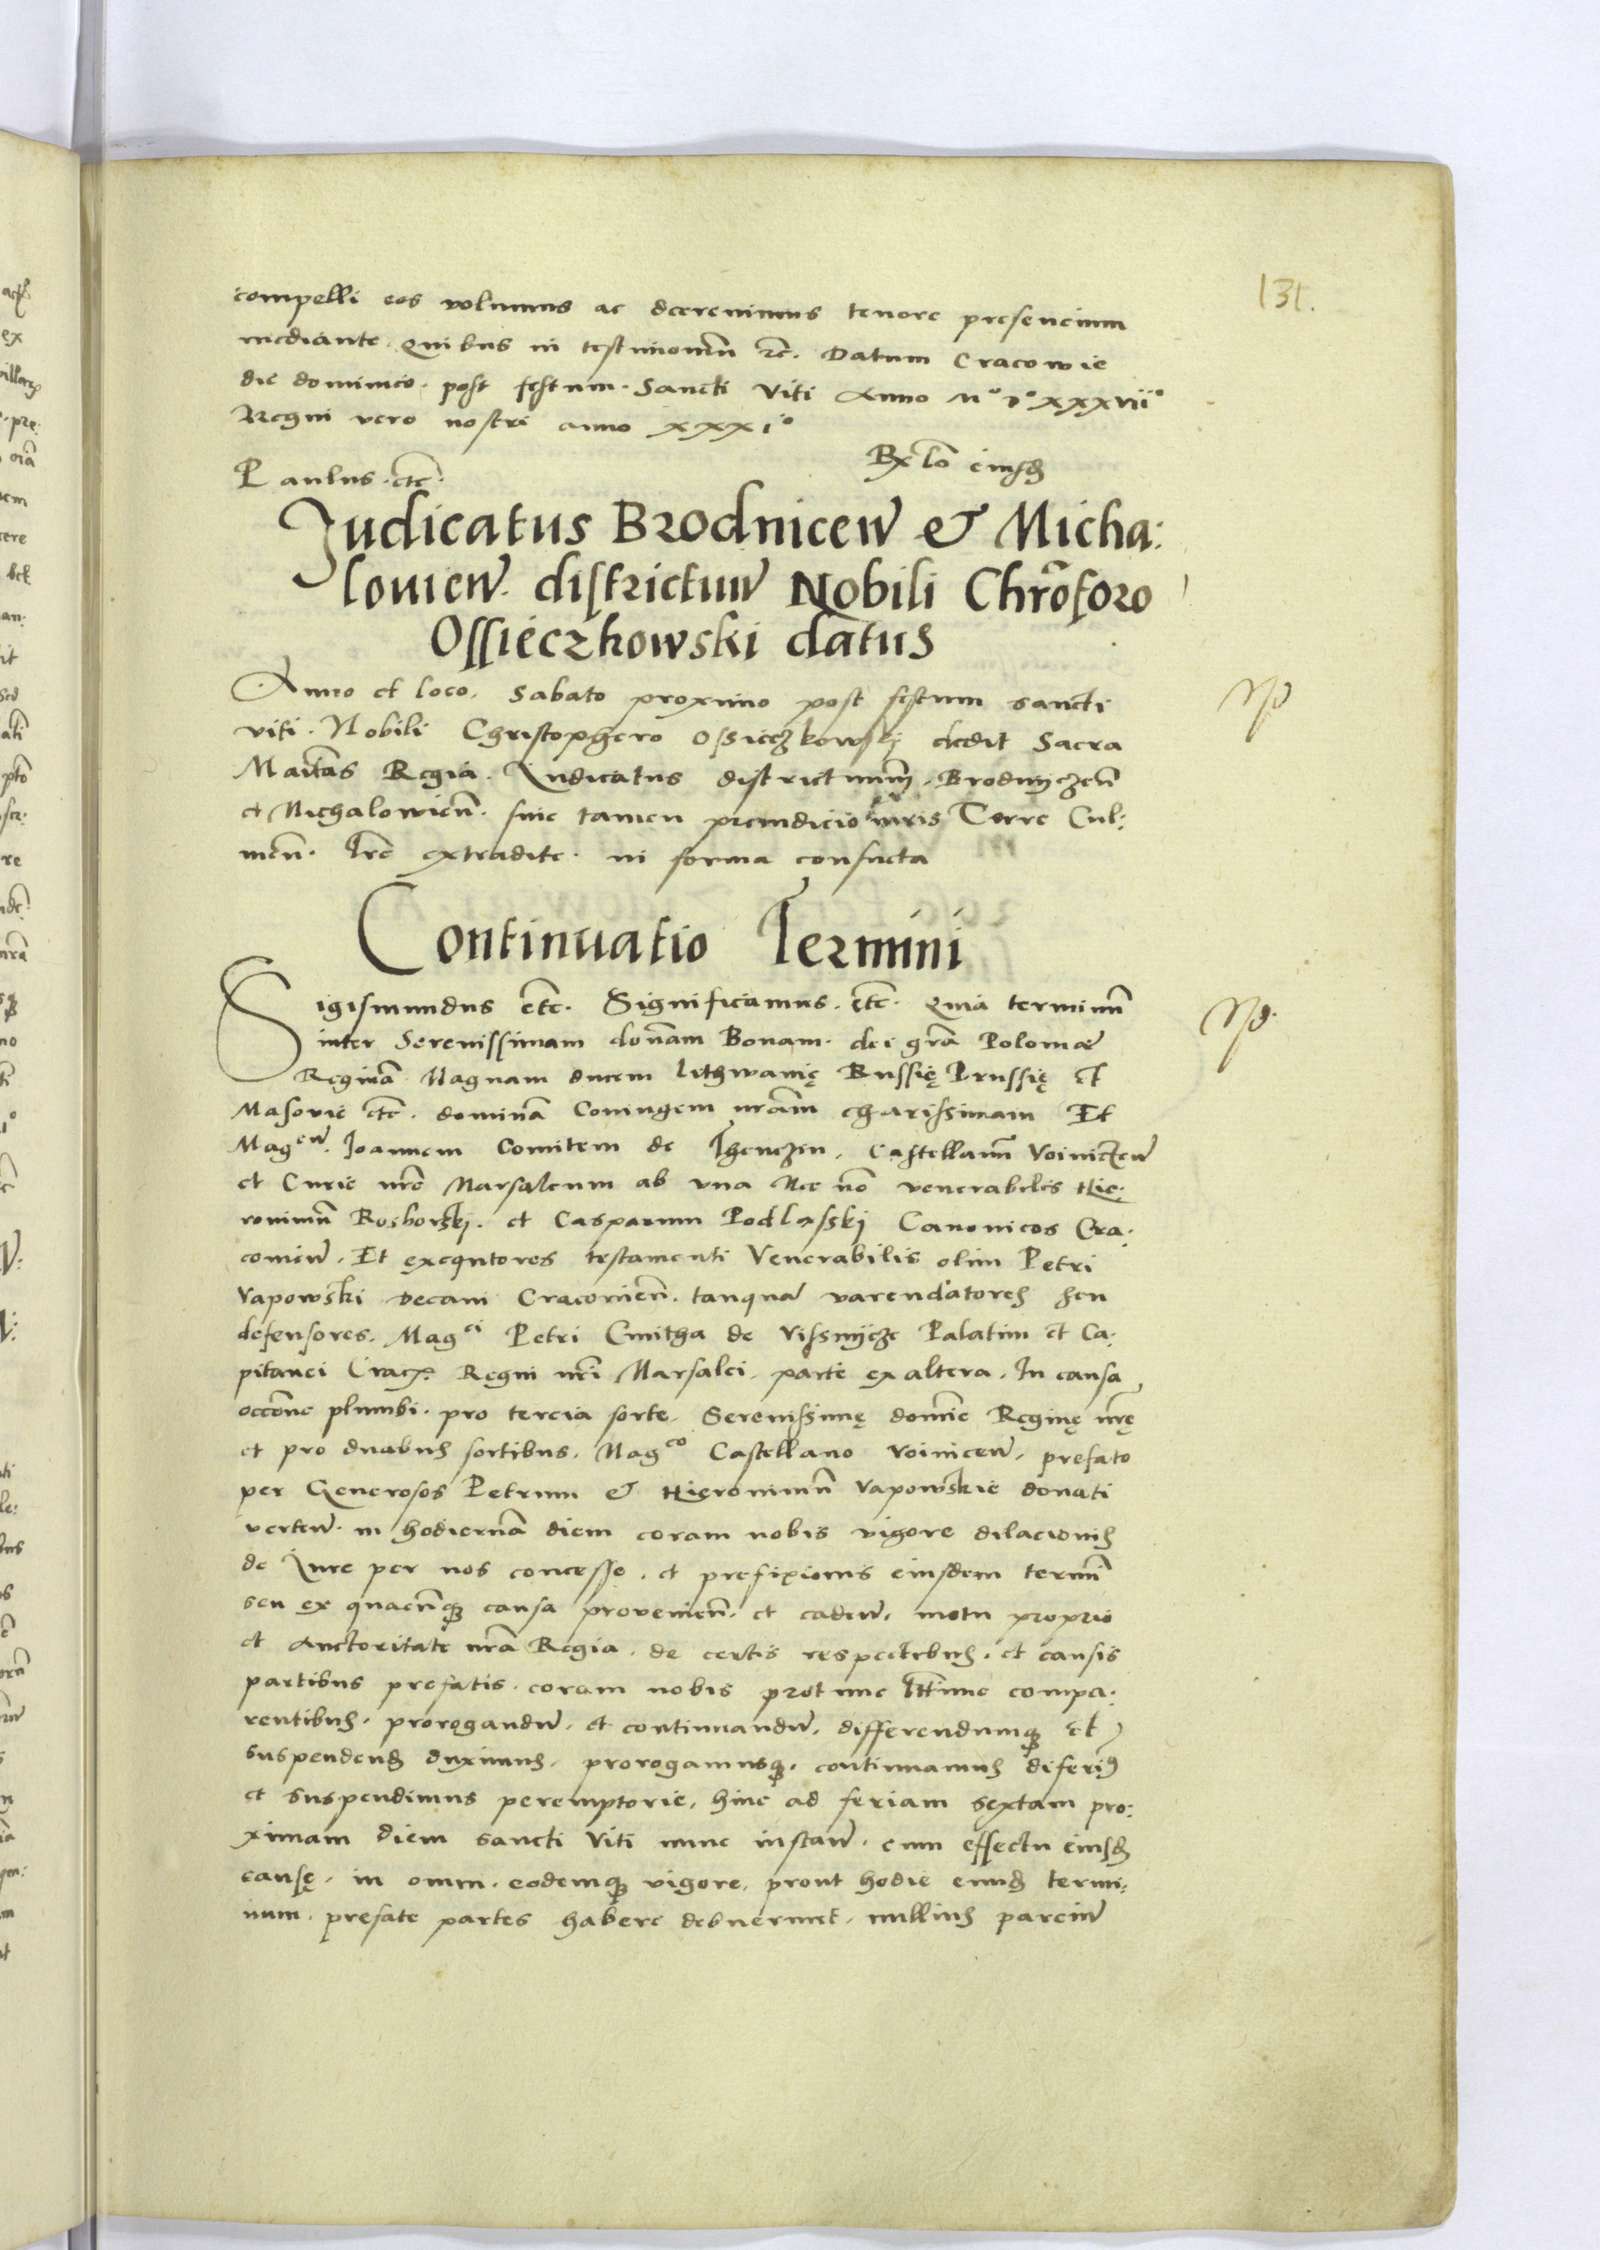 131.
compelli eos volumus ac decrevimus tenore presencium
mediante. Quibus in testimoniū rc̄. Datum Cracowie
die dominico. post festum. Sancti Viti Anno Mº Dº XXXVIIº
Regni vero nostri anno XXXIº
Paulus. etc̄.
Judicatus Brodniceñ & Micha:
lovieñ. districtuum Nobili Chrōforo
Ossieczkowski datus
Anno et loco. Sabato proximo post festum sancti
viti. Nobili Christophero Ossieczkowskj dedit Sacra
Maiestas Regia. Iudicatus districtuum. Brodnyczeñ
et Michalovieñ. sine tamen preiudicio iuris Terre Cul:
meñ. Lr̄e extradite. in forma consueta
Continuatio Termini
Sigismundus etc̄. Significamus. etc̄. Quia terminū
inter Serenissimam domnam Bonam. dei grā Poloniæ
Reginā Magnam ducem Lithwanię Russię Prussię et
Masovie etc̄. dominā Coniugem nrām charissimam Et
Magcum. Joannem Comitem de Thenczin. Castellanū Voinicieñ
et Curie nrē Marsalcum ab una Nec nō venerabiles Hie:
ronimū Roskowskj. et Casparum Podlasskj Canonicos Cra:
covieñ. Et exequtores testamenti Venerabilis olim Petri
Vapowski Decani Cracovieñ. tanquā varendatores seu
defensores. Magci Petri Cmitha de Vissnycze Palatini et Ca:
pitanei Crac. Regni nrī Marsalci. parte ex altera. In causa
occōne plumbi. pro tercia sorte. Serenissimę domīe Reginę nrę
et pro duabus sortibus. Magco Castellano Voiniceñ. prefato
per Generosos Petrum & Hieronimū Vapowskie donati
verteñ. in hodiernā diem coram nobis vigore dilacionis
de Iure per nos concesse. et prefixionis eiusdem termī
seu ex quacūq causa provenieñ. et cadeñ. motu proprio
et auctoritate nrā Regia. de certis respectibus. et causis
partibus prefatis. coram nobis compa:
rentibus. prorogandū. et continuandū. differendumq et
suspendend duximus. prorogamusq. continuamus
et suspendimus peremptorie. hinc ad feriam sextam pro:
ximam diem sancti Viti nunc instañ. cum effectu eiusd
causę. in omni. eodemq vigore. prout hodie eund termi:
num. prefate partes habere debuerunt. nullius parcium